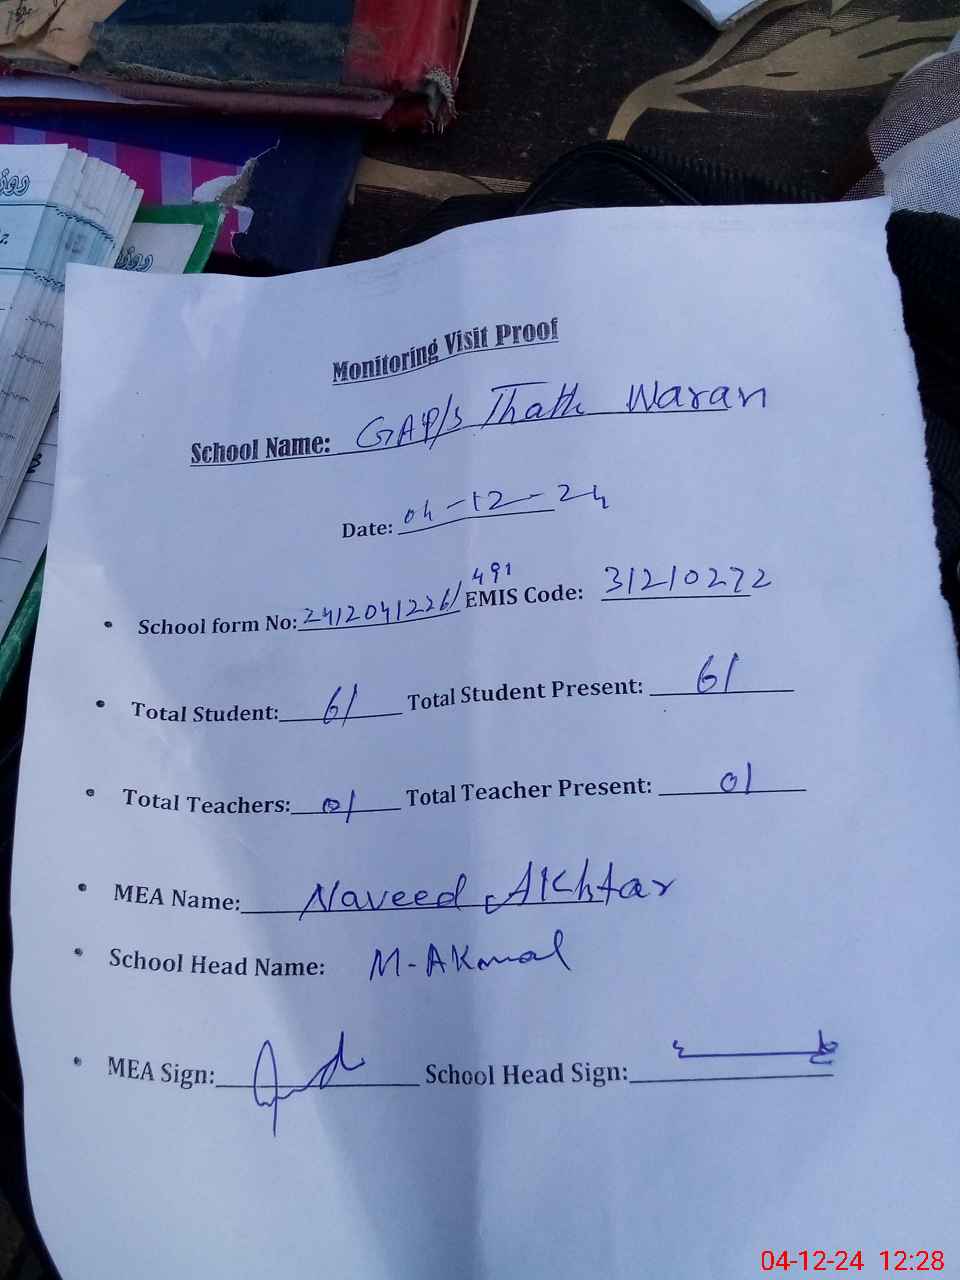 روز
روز
Monitoring Visit Proof
School Name: GAP/S Thath Waran
Date: 04-12-24
491
• School form No: 2412041226/ EMIS Code: 31210272
• Total Student: 61 Total Student Present: 61
• Total Teachers: 01 Total Teacher Present: 01
• MEA Name: Naveed Akhtar
• School Head Name: M-Akmal
• MEA Sign: School Head Sign:
04-12-24 12:28